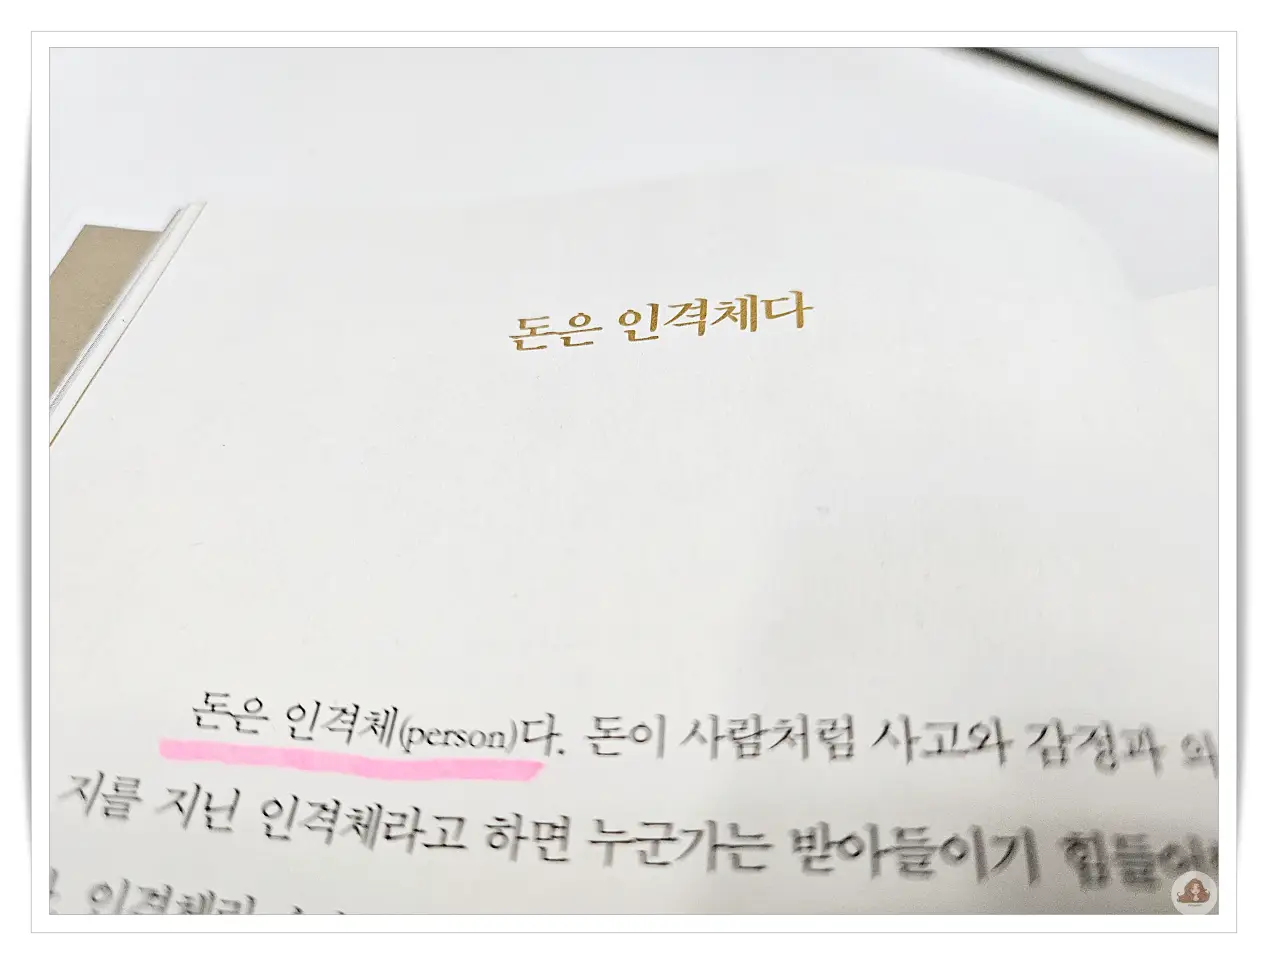 돈은 인격체다
돈은 인격체(person)다. 돈이 사람처럼 사고와 감정과 의
지를 지닌 인격체라고 하면 누군가는 받아들이기 힘들
인격체라